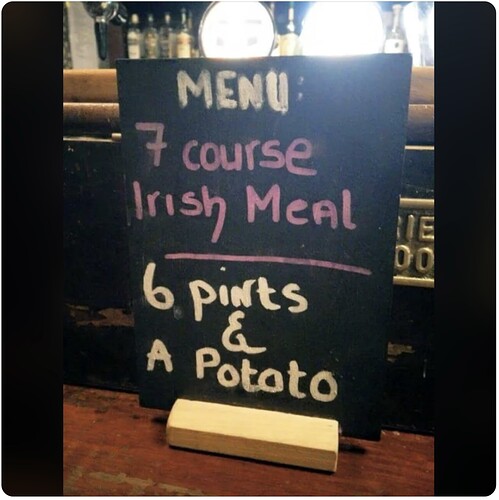 MENU
7 course
Irish Meal
6 pints
&
A Potato